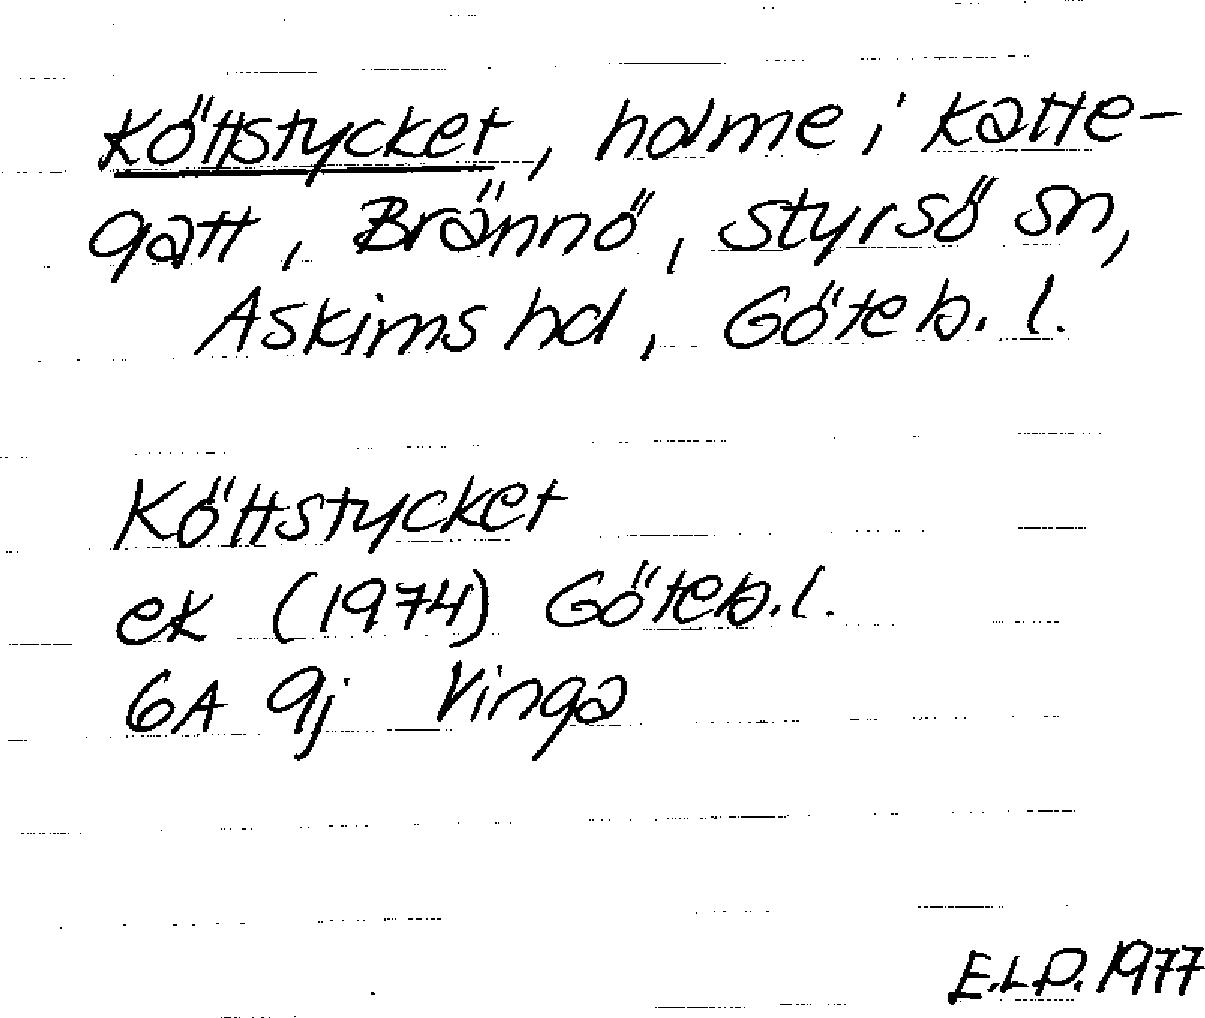 Köttstycket, holme i Katte-
gatt, Brännö, Styrsö sn,
Askims hd, Göteb. l.
Köttstycket
ek (1974) Göteb. l.
6A 9j Vinga
E.L.P. 1977